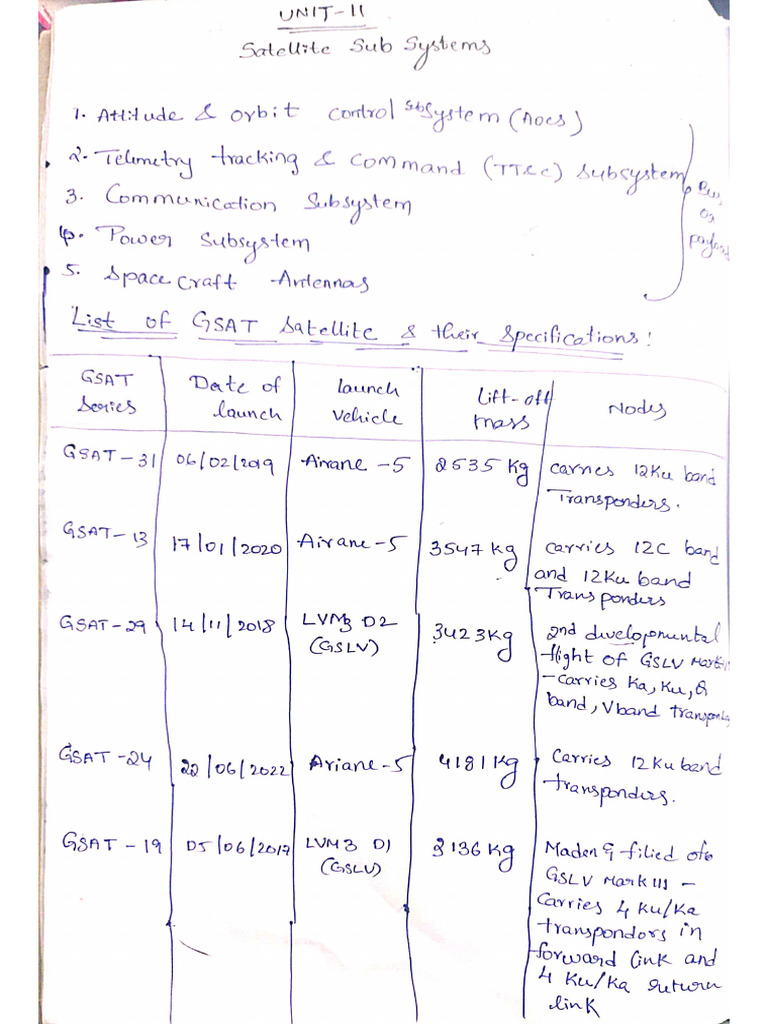 UNIT-II
Satellite Sub Systems
1. Attitude & orbit control subsystem (AOCS)
2. Telemetry tracking & command (TT&C) subsystem
3. Communication Subsystem
4. Power Subsystem
5. Space craft Antennas
Bus
or
payload
List of GSAT Satellite & their Specifications:
GSAT Series | Date of launch | launch vehicle | Lift-off mass | Nodes
GSAT-31 | 06/02/2019 | Airane-5 | 2535 kg | carries 12Ku band
Transponders.
GSAT-13 | 17/01/2020 | Airane-5 | 3547 kg | carries 12C band
and 12Ku band
Transponders
GSAT-29 | 14/11/2018 | LVM3 D2 (GSLV) | 3423Kg | 2nd developmental
flight of GSLV Mark-
-carries Ka, Ku, Q
band, Vband
GSAT-24 | 22/06/2022 | Ariane-5 | 4181 kg | Carries 12Ku band
transponders.
GSAT-19 | 05/06/2017 | LVM3 D1 (GSLV) | 3136 kg | filied of
GSLV Mark III -
Carries 4 Ku/Ka
transpondors in
forward link and
4 Ku/Ka return
link